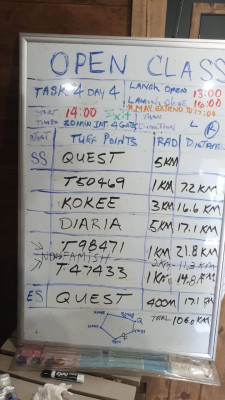 OPEN CLASS
TASK 4 DAY 4 LAUNCH OPEN 13:00
LAUNCH CLOSE 16:00
* MAY EXTEND TO 17:00
START 14:00 EXIT
20 MIN INT 4 GATES
TURN POINTS RAD DISTANCE
SS QUEST 5KM
T50469 1KM 7.2 KM
KOKEE 3KM 16.6 KM
DIARIA 5KM 17.1 KM
T98471 1KM 21.8 KM
FAMISH 11.3 KM
T47433 1KM 14.8 KM
ES QUEST 400M 17.1 KM
TOTAL 106.0 KM